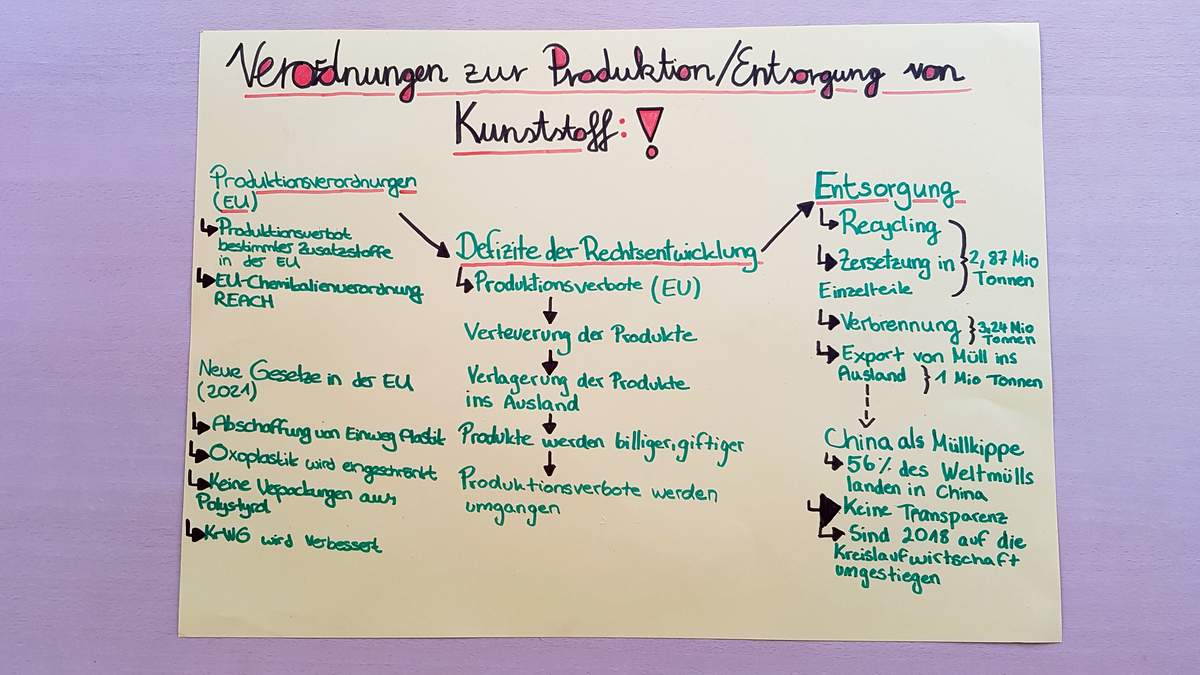 Verordnungen zur Produktion/Entsorgung von
Kunststoff:!
Produktionsverordnungen
(EU)
Produktionsverbot
bestimmter Zusatzstoffe
in der EU
EU-Chemikalienverordnung
REACH
Neue Gesetze in der EU
(2021)
Abschaffung von Einweg Plastik
Oxoplastik wird eingeschränkt
Keine Verpackungen aus
Polystyrol
KrWG wird verbessert
Defizite der Rechtsentwicklung
Produktionsverbote (EU)
Verteuerung der Produkte
Verlagerung der Produkte
ins Ausland
Produkte werden billiger, giftiger
Produktionsverbote werden
umgangen
Entsorgung
Recycling
Zersetzung in
Einzelteile
2,87 Mio
Tonnen
Verbrennung } 3,24 Mio
Tonnen
Export von Müll ins
Ausland } 1 Mio Tonnen
China als Müllkippe
56% des Weltmülls
landen in China
Keine Transparenz
Sind 2018 auf die
Kreislaufwirtschaft
umgestiegen